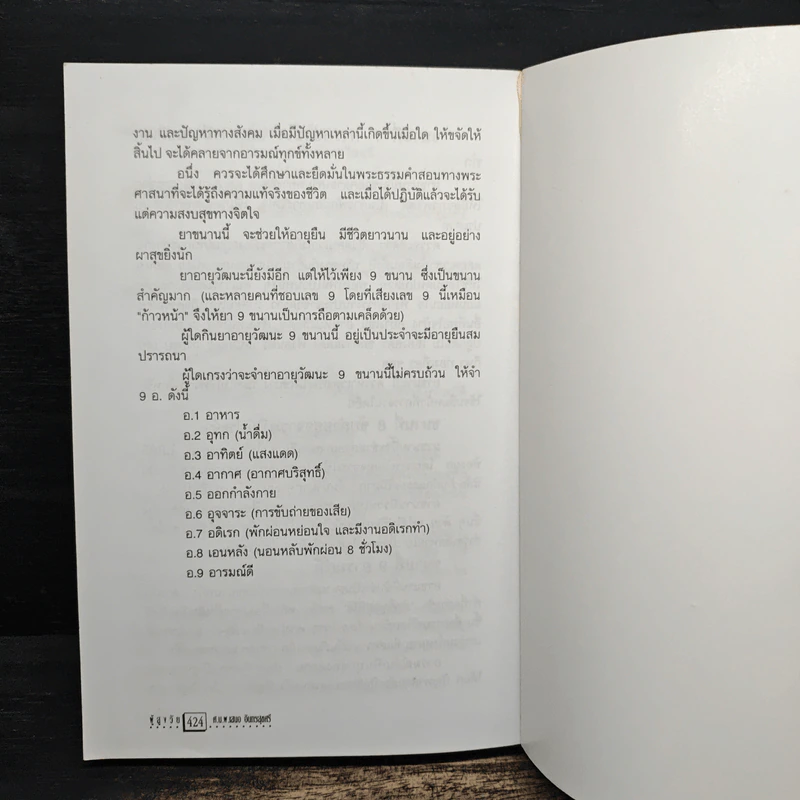 งาน และปัญหาทางสังคม เมื่อมีปัญหาเหล่านี้เกิดขึ้นเมื่อใด ให้ขจัดให้
สิ้นไป จะได้คลายจากอารมณ์ทุกข์ทั้งหลาย
อนึ่ง ควรจะได้ศึกษาและยึดมั่นในพระธรรมคำสอนทางพระ
ศาสนาที่จะได้รู้ถึงความแท้จริงของชีวิต และเมื่อได้ปฏิบัติแล้วจะได้รับ
แต่ความสงบสุขทางจิตใจ
ยาขนานนี้ จะช่วยให้อายุยืน มีชีวิตยาวนาน และอยู่อย่าง
ผาสุขยิ่งนัก
ยาอายุวัฒนะนี้ยังมีอีก แต่ให้ไว้เพียง 9 ขนาน ซึ่งเป็นขนาน
สำคัญมาก (และหลายคนที่ชอบเลข 9 โดยที่เสียงเลข 9 นี้เหมือน
"ก้าวหน้า" จึงให้ยา 9 ขนานเป็นการถือตามเคล็ดด้วย)
ผู้ใดกินยาอายุวัฒนะ 9 ขนานนี้ อยู่เป็นประจำจะมีอายุยืนสม
ปรารถนา
ผู้ใดเกรงว่าจะจำยาอายุวัฒนะ 9 ขนานนี้ไม่ครบถ้วน ให้จำ
9 อ. ดังนี้
อ.1 อาหาร
อ.2 อุทก (น้ำดื่ม)
อ.3 อาทิตย์ (แสงแดด)
อ.4 อากาศ (อากาศบริสุทธิ์)
อ.5 ออกกำลังกาย
อ.6 อุจจาระ (การขับถ่ายของเสีย)
อ.7 อดิเรก (พักผ่อนหย่อนใจ และมีงานอดิเรกทำ)
อ.8 เอนหลัง (นอนหลับพักผ่อน 8 ชั่วโมง)
อ.9 อารมณ์ดี
ผู้สูงวัย 424 ศ.น.พ.เสนอ อินทรสุขศรี